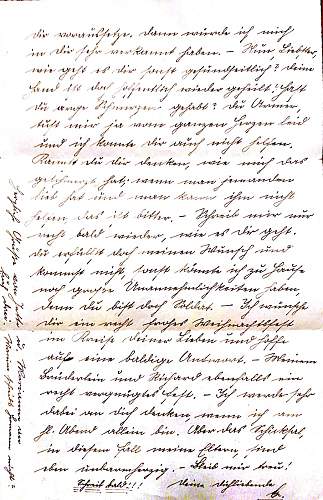 dir voraussetze. Dann würde ich mich
in Dir sehr verkannt haben. – Nun, Liebster,
wie geht es Dir sonst gesundheitlich? Deine
Hand ist doch hoffentlich wieder geheilt? Hast
Du arge Schmerzen gehabt? Du Armer,
tust mir ja vom ganzen Herzen leid
und ich konnte Dir auch nicht helfen.
Kannst Du Dir denken, wie mich das
geschmerzt hat; wenn man jemanden
lieb hat und man kann ihm nicht
helfen, das ist bitter. – Schreib mir nur
recht bald wieder, wie es Dir geht.
Du erfüllst doch meinen Wunsch und
kommst nicht, sonst könnte ich zu Hause
noch große Unannehmlichkeiten haben,
denn Du bist doch Soldat. – Ich wünsche
Dir ein recht frohes Weihnachtsfest
im Kreise Deiner Lieben und hoffe
auf eine baldige Antwort. – Meinem
Brüderlein und Richard ebenfalls ein
recht vergnügtes Fest. – Ich werde sehr
dabei an Dich denken, wenn ich am
hl. Abend allein bin. Aber das Schicksal,
in diesem Fall meine Eltern, sind
eben unbarmherzig. – Bleib mir treu!
Schreib bald!!! Deine Dichliebende